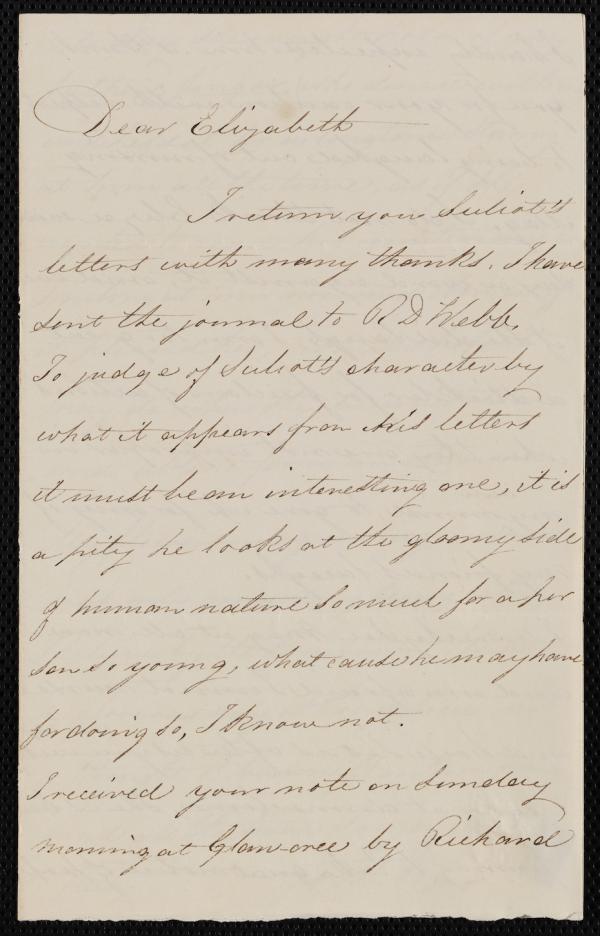 Dear Elizabeth
I return you Suliot's
letters with many thanks. I have
sent the journal to R D Webb.
To judge of Suliot's character by
what it appears from his letters
it must be an interesting one, it is
a pity he looks at the gloomy side
of human nature so much for a per
son so young, what cause he may have
for doing so, I know not.
I received your note on Sunday
morning at by Richard